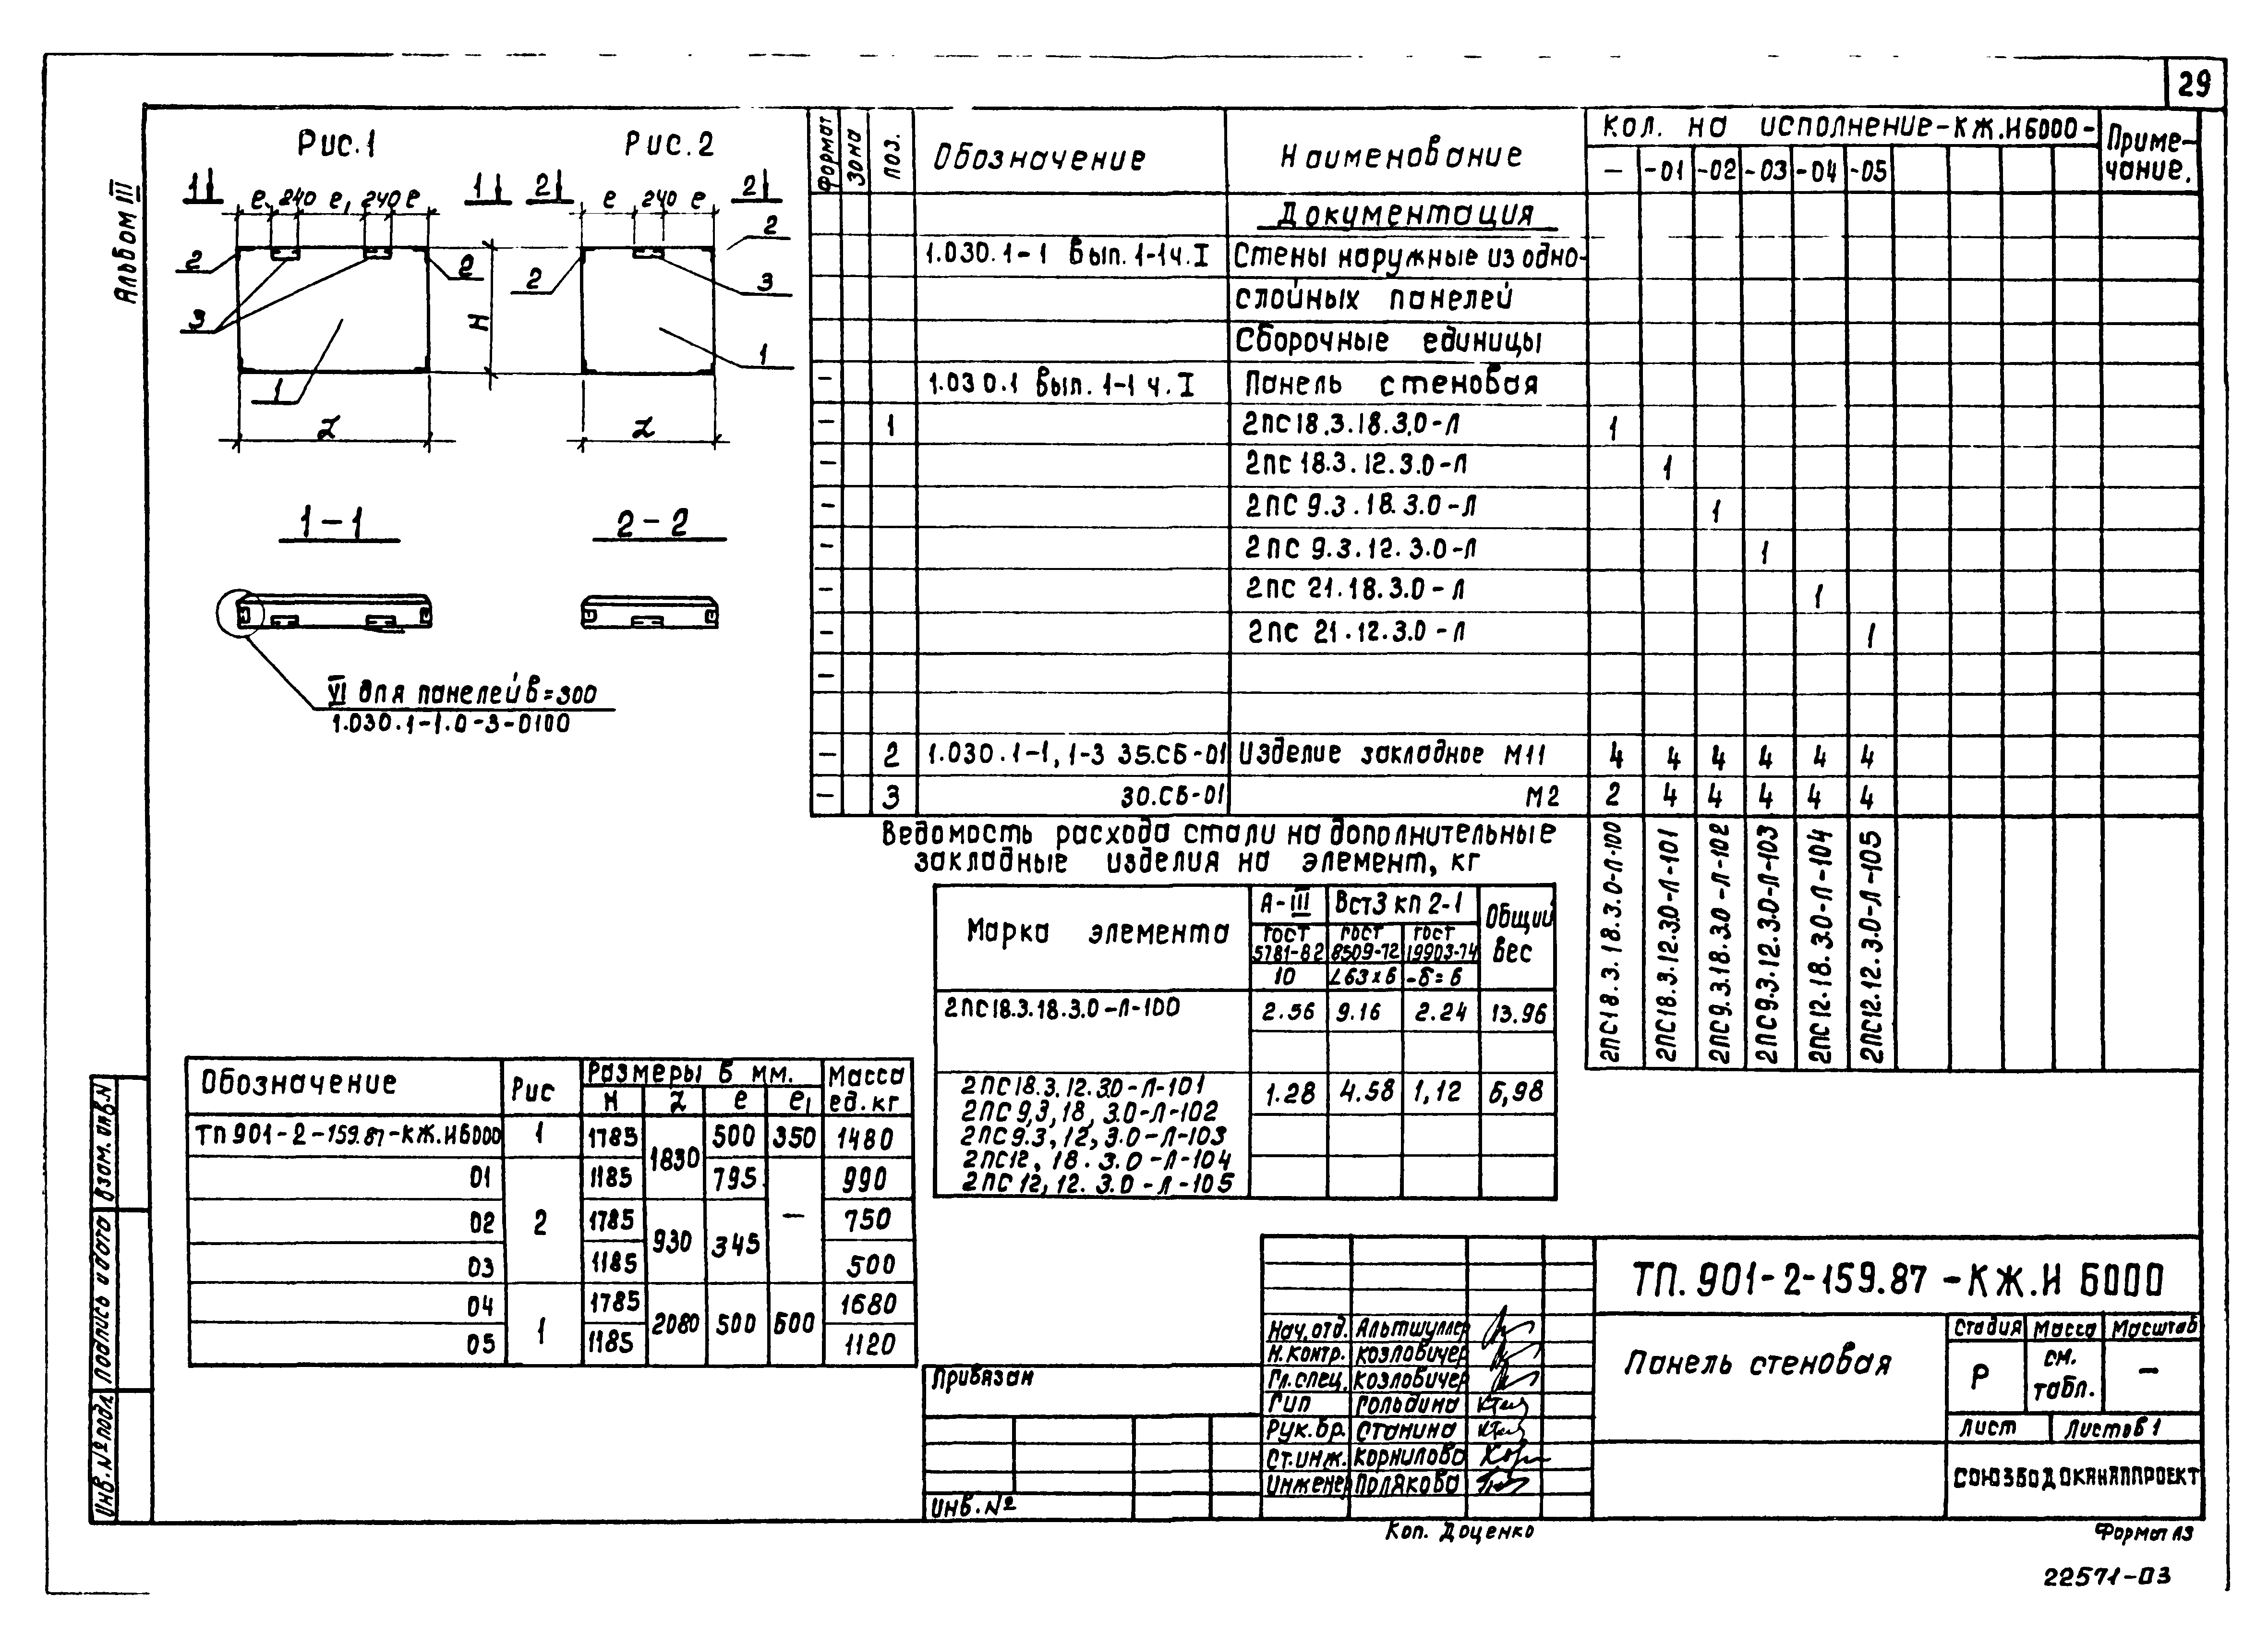 29
Альбом III
Рис.1
Рис.2
1 1 2 2
е 240 е₁ 240 е
е 240 е
2 2 2 2
3 3
H
1 1
L L
1-1
2-2
VI для панелей в=300
1.030.1-1.0-3-0100
Формат Зона Поз. Обозначение Наименование Кол. на исполнение-КЖ.И6000- Приме-
чание.
— -01 -02 -03 -04 -05
Документация
1.030.1-1 вып. 1-1ч.I Стены наружные из одно-
слойных панелей
Сборочные единицы
— 1.030.1 вып. 1-1 ч.I Панель стеновая
— 1 2ПС18.3.18.3.0-Л 1
— 2ПС 18.3.12.3.0-Л 1
— 2ПС 9.3.18.3.0-Л 1
— 2ПС 9.3.12.3.0-Л 1
— 2ПС 21.18.3.0-Л 1
— 2ПС 21.12.3.0-Л 1
—
— 2 1.030.1-1, 1-3 35.СБ-01 Изделие закладное М11 4 4 4 4 4 4
— 3 30.СБ-01 М2 2 4 4 4 4 4
2ПС18.3.18.3.0-Л-100
2ПС18.3.12.3.0-Л-101
2ПС9.3.18.3.0-Л-102
2ПС9.3.12.3.0-Л-103
2ПС12.18.3.0-Л-104
2ПС12.12.3.0-Л-105
Ведомость расхода стали на дополнительные
закладные изделия на элемент, кг
Марка элемента А-III Вст3 кп 2-1 Общий
вес
ГОСТ ГОСТ ГОСТ
5781-82 8509-72 19903-74
10 ∠63х6 -δ=6
2ПС18.3.18.3.0-Л-100 2.56 9.16 2.24 13.96
2ПС18.3.12.3.0-Л-101 1.28 4.58 1,12 6,98
2ПС9,3,18, 3.0-Л-102
2ПС9.3,12,3.0-Л-103
2ПС12, 18.3.0-Л-104
2ПС12,12.3.0-Л-105
Обозначение Рис Размеры в мм. Масса
ед.кг
H L е е₁
ТП901-2-159.87-КЖ.И6000 1 1785 1830 500 350 1480
01 2 1185 795 — 990
02 1785 930 345 750
03 1185 500
04 1 1785 2080 500 600 1680
05 1185 1120
Взам. инв.N
Подпись и дата
Инв.№подл.
Привязан
Инв.№
Нач.отд. Альтшуллер
Н.контр. Козловичер
Гл.спец. Козловичер
Гип Гольдина
Рук.бр. Станина
Ст.инж. Корнилова
Инженер Полякова
ТП. 901-2-159.87 -КЖ.И 6000
Панель стеновая
Стадия Масса Масштаб
Р см.
табл. —
Лист Листов 1
СОЮЗВОДОКАНАЛПРОЕКТ
Коп. Доценко
Формат А3
22571-03